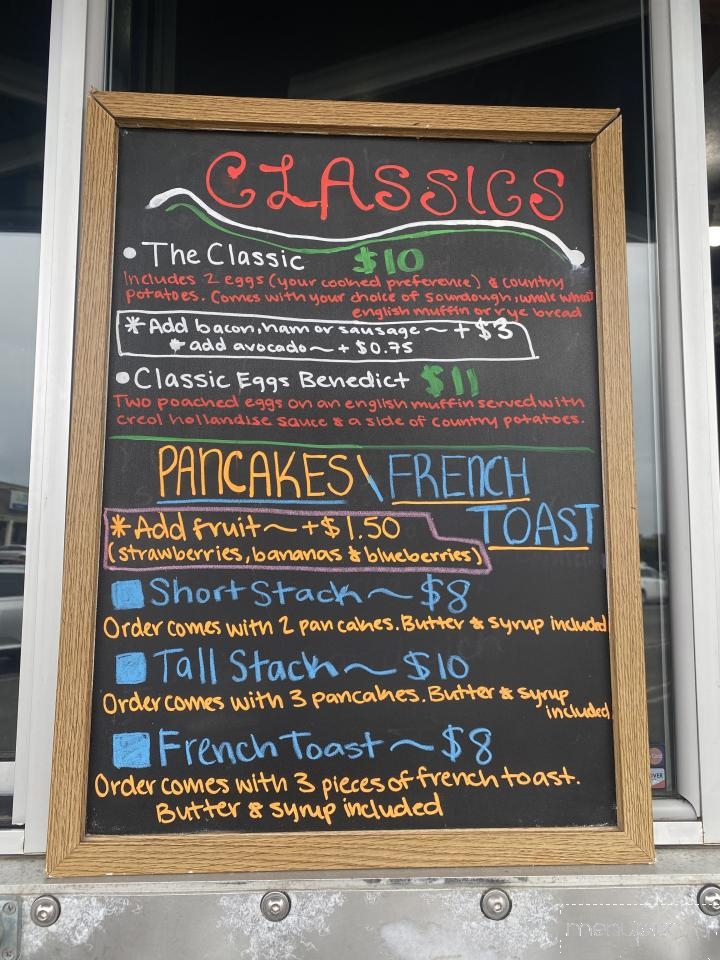 CLASSICS
• The Classic $10
Includes 2 eggs (your cooked preference) & country
potatoes. Comes with your choice of sourdough, whole wheat
english muffin or rye bread
* Add bacon, ham or sausage ~ + $3
* add avocado ~ + $0.75
• Classic Eggs Benedict $11
Two poached eggs on an english muffin served with
creol hollandise sauce & a side of country potatoes.
PANCAKES \ FRENCH
TOAST
* Add fruit ~ +$1.50
(strawberries, bananas & blueberries)
Short Stack ~ $8
Order comes with 2 pan cakes. Butter & syrup included
Tall Stack ~ $10
Order comes with 3 pancakes. Butter & syrup
included
French Toast ~ $8
Order comes with 3 pieces of french toast.
Butter & syrup included